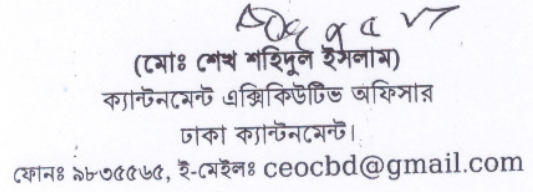 (মোঃ শেখ শহিদুল ইসলাম)
ক্যান্টনমেন্ট এক্সিকিউটিভ অফিসার
ঢাকা ক্যান্টনমেন্ট।
ফোনঃ ৯৮৩৫৫৬৫, ই-মেইলঃ ceocbd@gmail.com